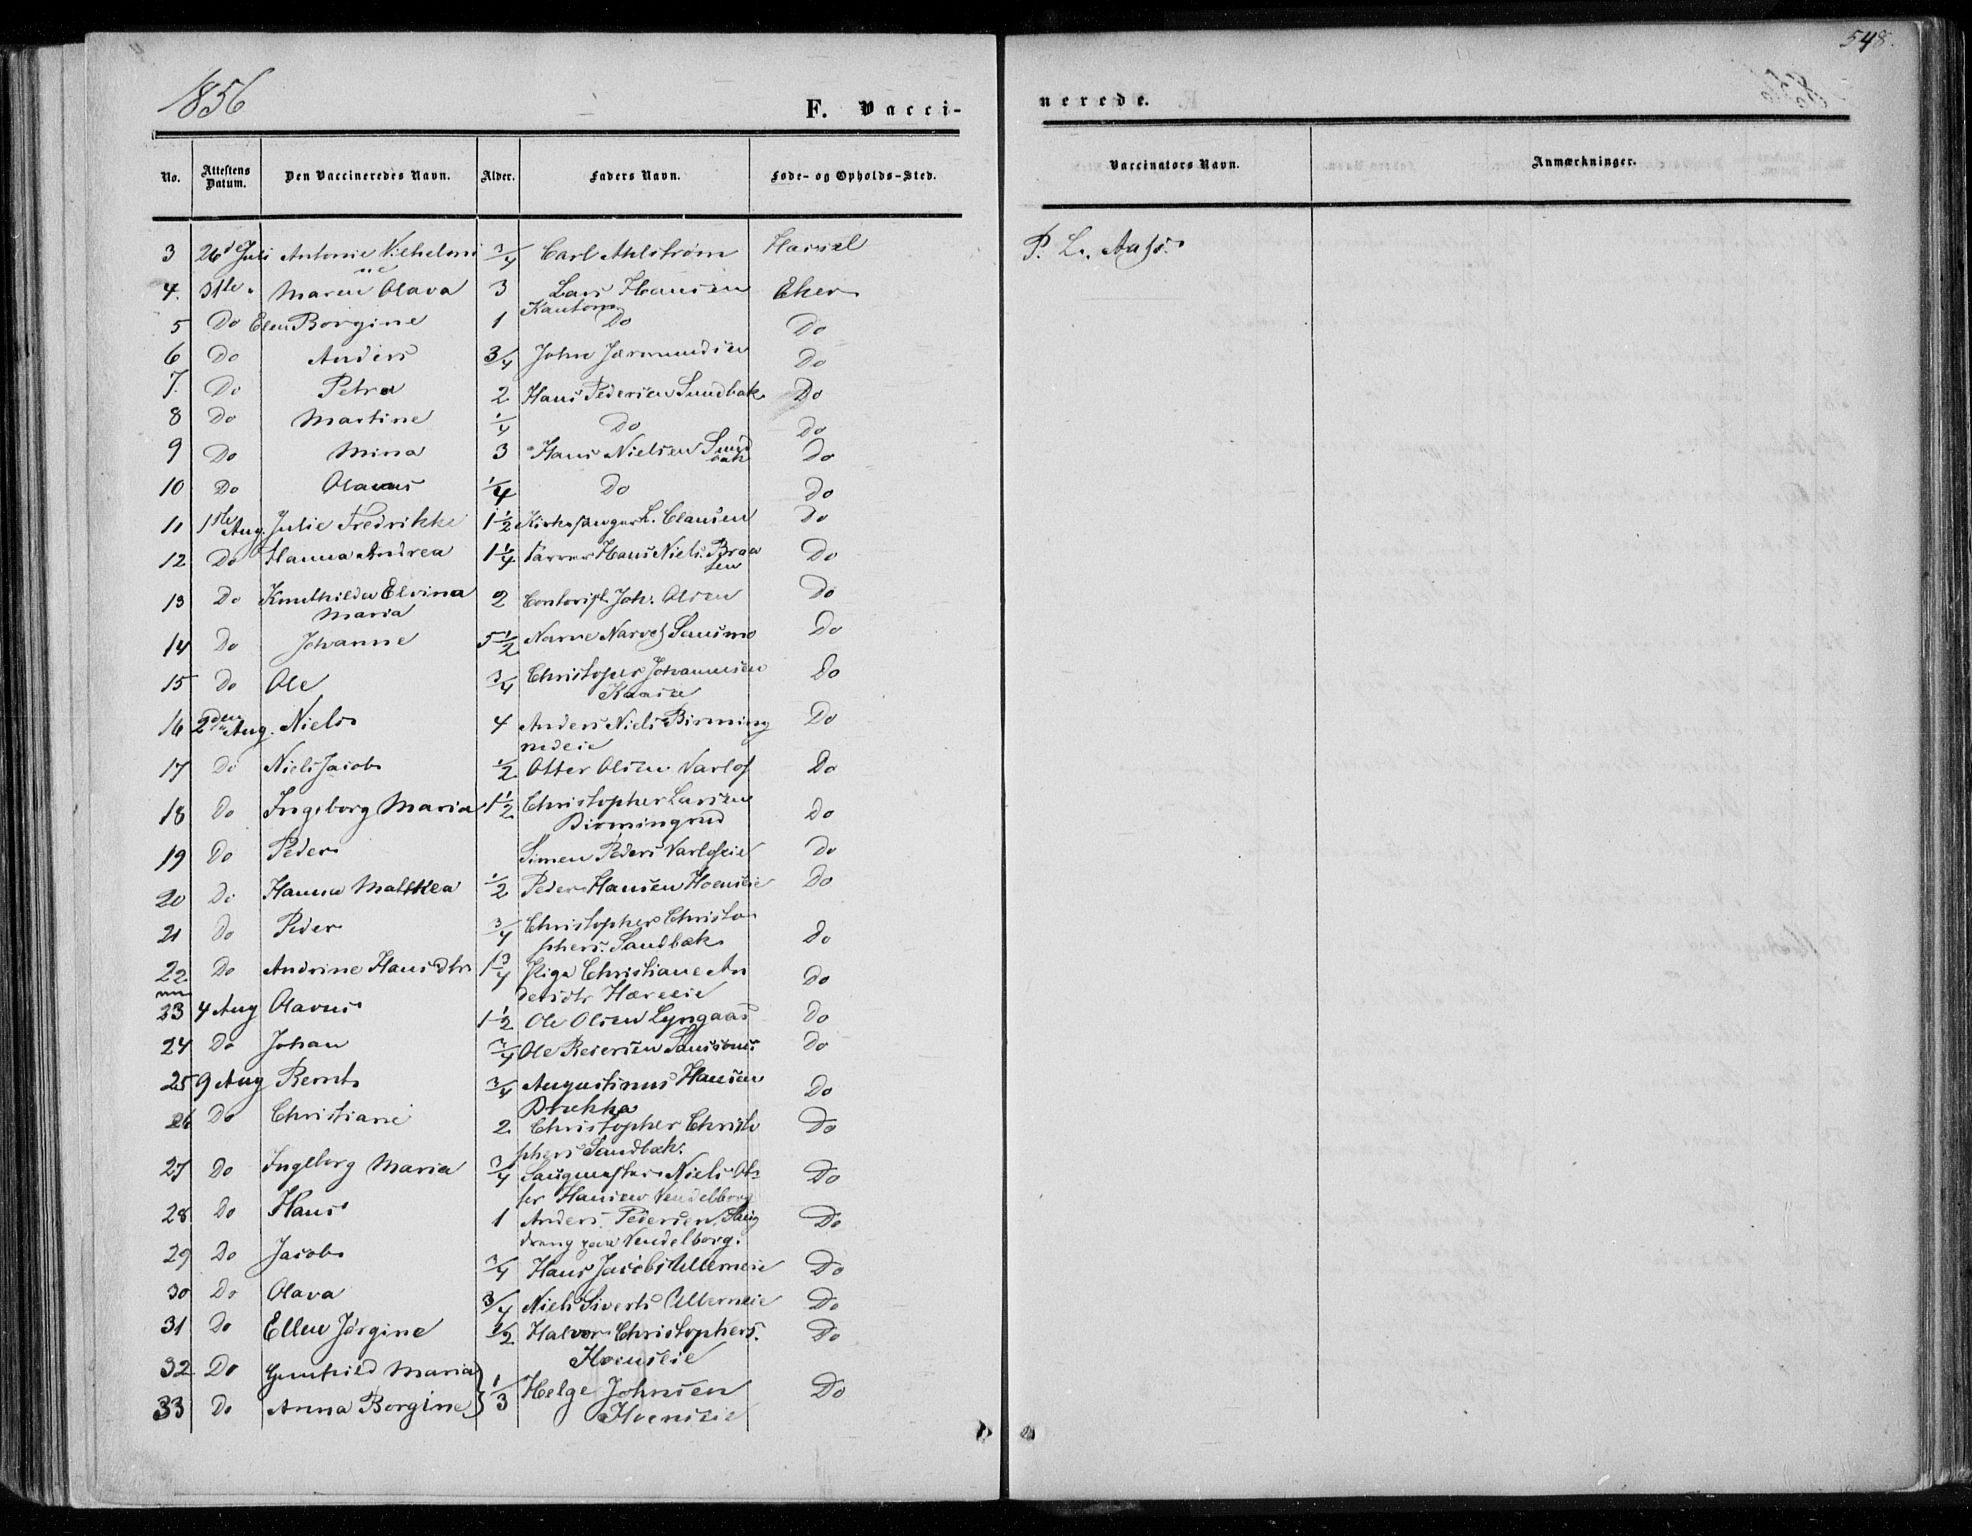 548.
1856
F. Vacci-
nerede.
No. Attestens Datum. Den Vaccineredes Navn. Alder. Faders Navn. Føde- og Opholds-Sted. Vaccinators Navn. Anmærkninger.
3 26de Juli Antonie Vilhelmi 3/4 Carl Ahlstrøm Hassel P. L. Aass.
ne
4. 31te " Maren Olava 3 Lars Hansen Eker
5 Do Elen Borgine 1 Do Do
6 Do Anders 3/4 John Jørmundsen Do
7. Do Petra 2 Hans Pedersen Sundbak Do
8 Do Martine 1/4 Do Do
9 Do Mina 3 Hans Nielsen Sund Do
bak
10 Do Olavus 1/4 Do Do
11 1ste Aug. Julie Fredrikke 1 1/2 Kirkesanger L. Clausen Do
12 Do Hanna Andrea 1 1/4 Farver Hans Niels. Braa Do
ten
13 Do Knuthilda Elvina 2 Contorist Joh. Olsen Do
Maria
14 Do Johanne 5 1/2 Narve Narves Do
15 Do Ole 3/4 Christopher Johannesen Do
Kaase
16 2den Aug. Niels 4 Anders Niels Birming Do
rudeie
17 Do Niels Jacob 1/2 Otter Olsen Varlof Do
18 Do Ingeborg Maria 1 1/2 Christopher Larsen Do
Birmingrud
19 Do Peder Simen Peders Varlofeie Do
20 Do Hanna Mathea 1/2 Peder Hansen Hoenseie Do
21 Do Peder 3/4 Christopher Christo Do
phers. Sandbæk
22 Do Andrine Hansdtr 1 3/4 Piga Christiane An Do
dersdtr
23 4 Aug Olavus 1 1/2 Ole Olsen Lyngaas Do
24 Do Johan 3/4 Ole Reiersen Do
25 9 Aug Bernt 3/4 Augustinus Hansen Do
26 Do Christiane 2 Christopher Christo Do
phers Sandbæk.
27 Do Ingeborg Maria 3/4 Saugmester Niels Ol Do
Hansen Vendelborg
28 Do Hans 1 Anders Pedersen Saug Do
dreng paa Vendelborg.
29 Do Jacob 3/4 Hans Jacobs Ullerneie Do
30 Do Olava 3/4 Niels Siverts Ullerneie Do
31 Do Ellen Jørgine 1/2 Halvor Christophers. Do
Hoenseie
32 Do Gunhild Maria } 1/3 Helge Johnsen Do
33 Do Anna Borgine Hoenseie